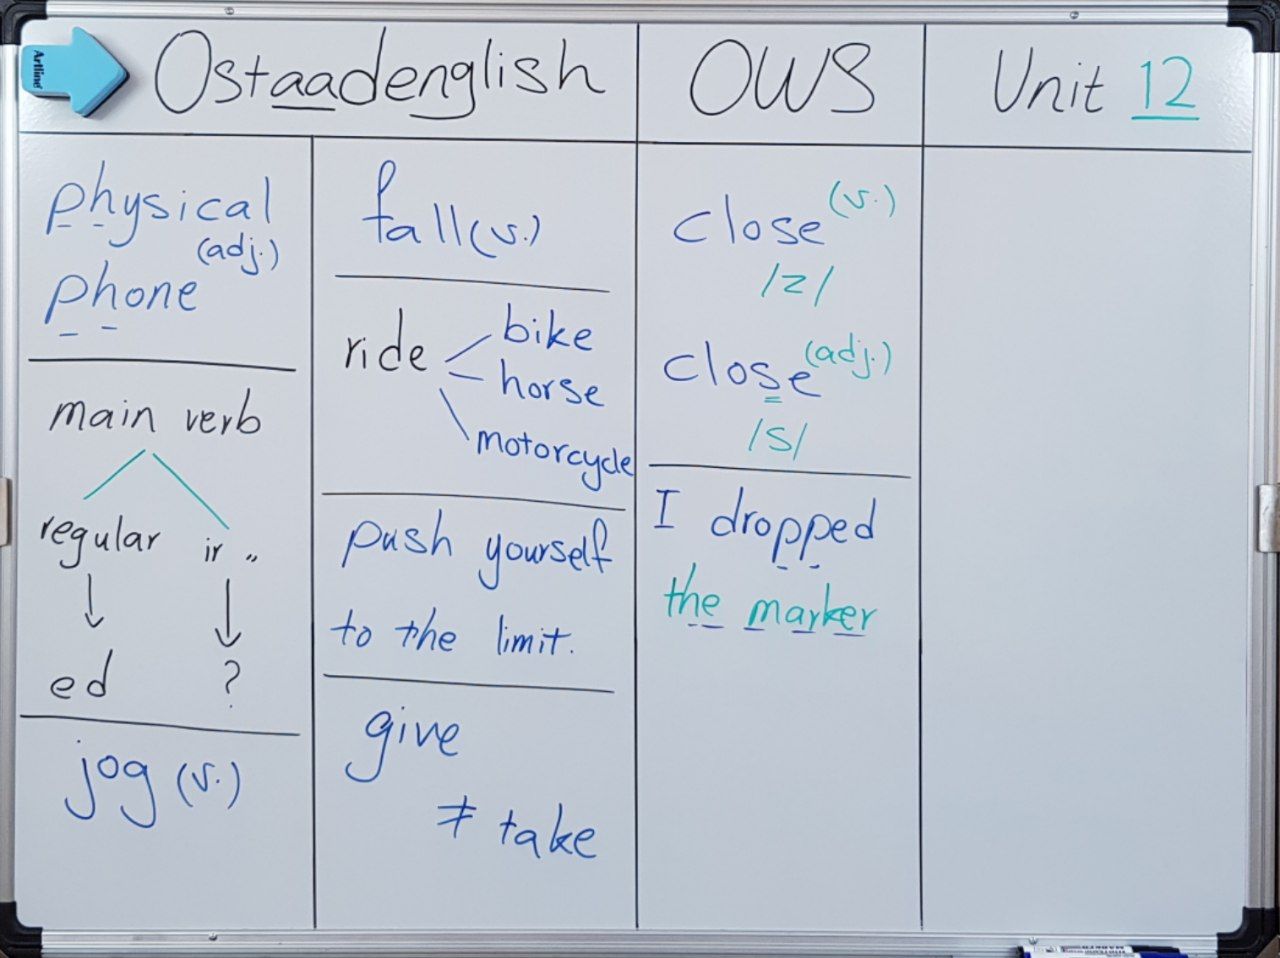 Artline
Ostaadenglish
OWS
Unit 12
physical
(adj.)
phone
main verb
regular ir "
ed ?
jog (v.)
fall (v.)
ride
bike
horse
motorcycle
push yourself
to the limit.
give
≠ take
close (v.)
/z/
close (adj.)
/s/
I dropped
the marker